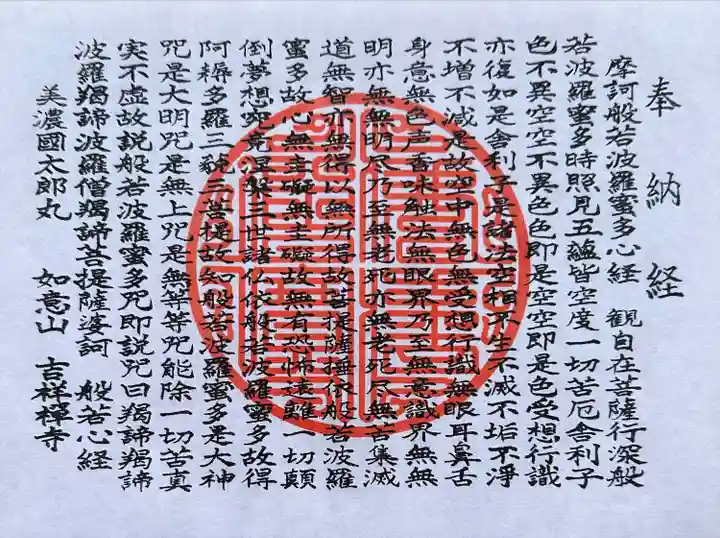 奉納経
摩訶般若波羅蜜多心経 観自在菩薩行深般
若波羅蜜多時照見五蘊皆空度一切苦厄舎利子
色不異空空不異色色即是空空即是色受想行識
亦復如是舎利子是諸法空相不生不滅不垢不淨
不増不減是故空中無色無受想行識無眼耳鼻舌
身意無色声香味触法無眼界乃至無意識界無無
明亦無無明尽乃至無老死亦無老死尽無苦集滅
道無智亦無得以無所得故菩提薩埵依般若波羅
蜜多故心無罣礙無罣礙故無有恐怖遠離一切顛
倒夢想究竟涅槃三世諸仏依般若波羅蜜多故得
阿耨多羅三藐三菩提故知般若波羅蜜多是大神
咒是大明咒是無上咒是無等等咒能除一切苦真
実不虚故説般若波羅蜜多咒即説咒曰羯諦羯諦
波羅羯諦波羅僧羯諦菩提薩婆訶 般若心経
美濃國太郎丸 如意山 吉祥禅寺